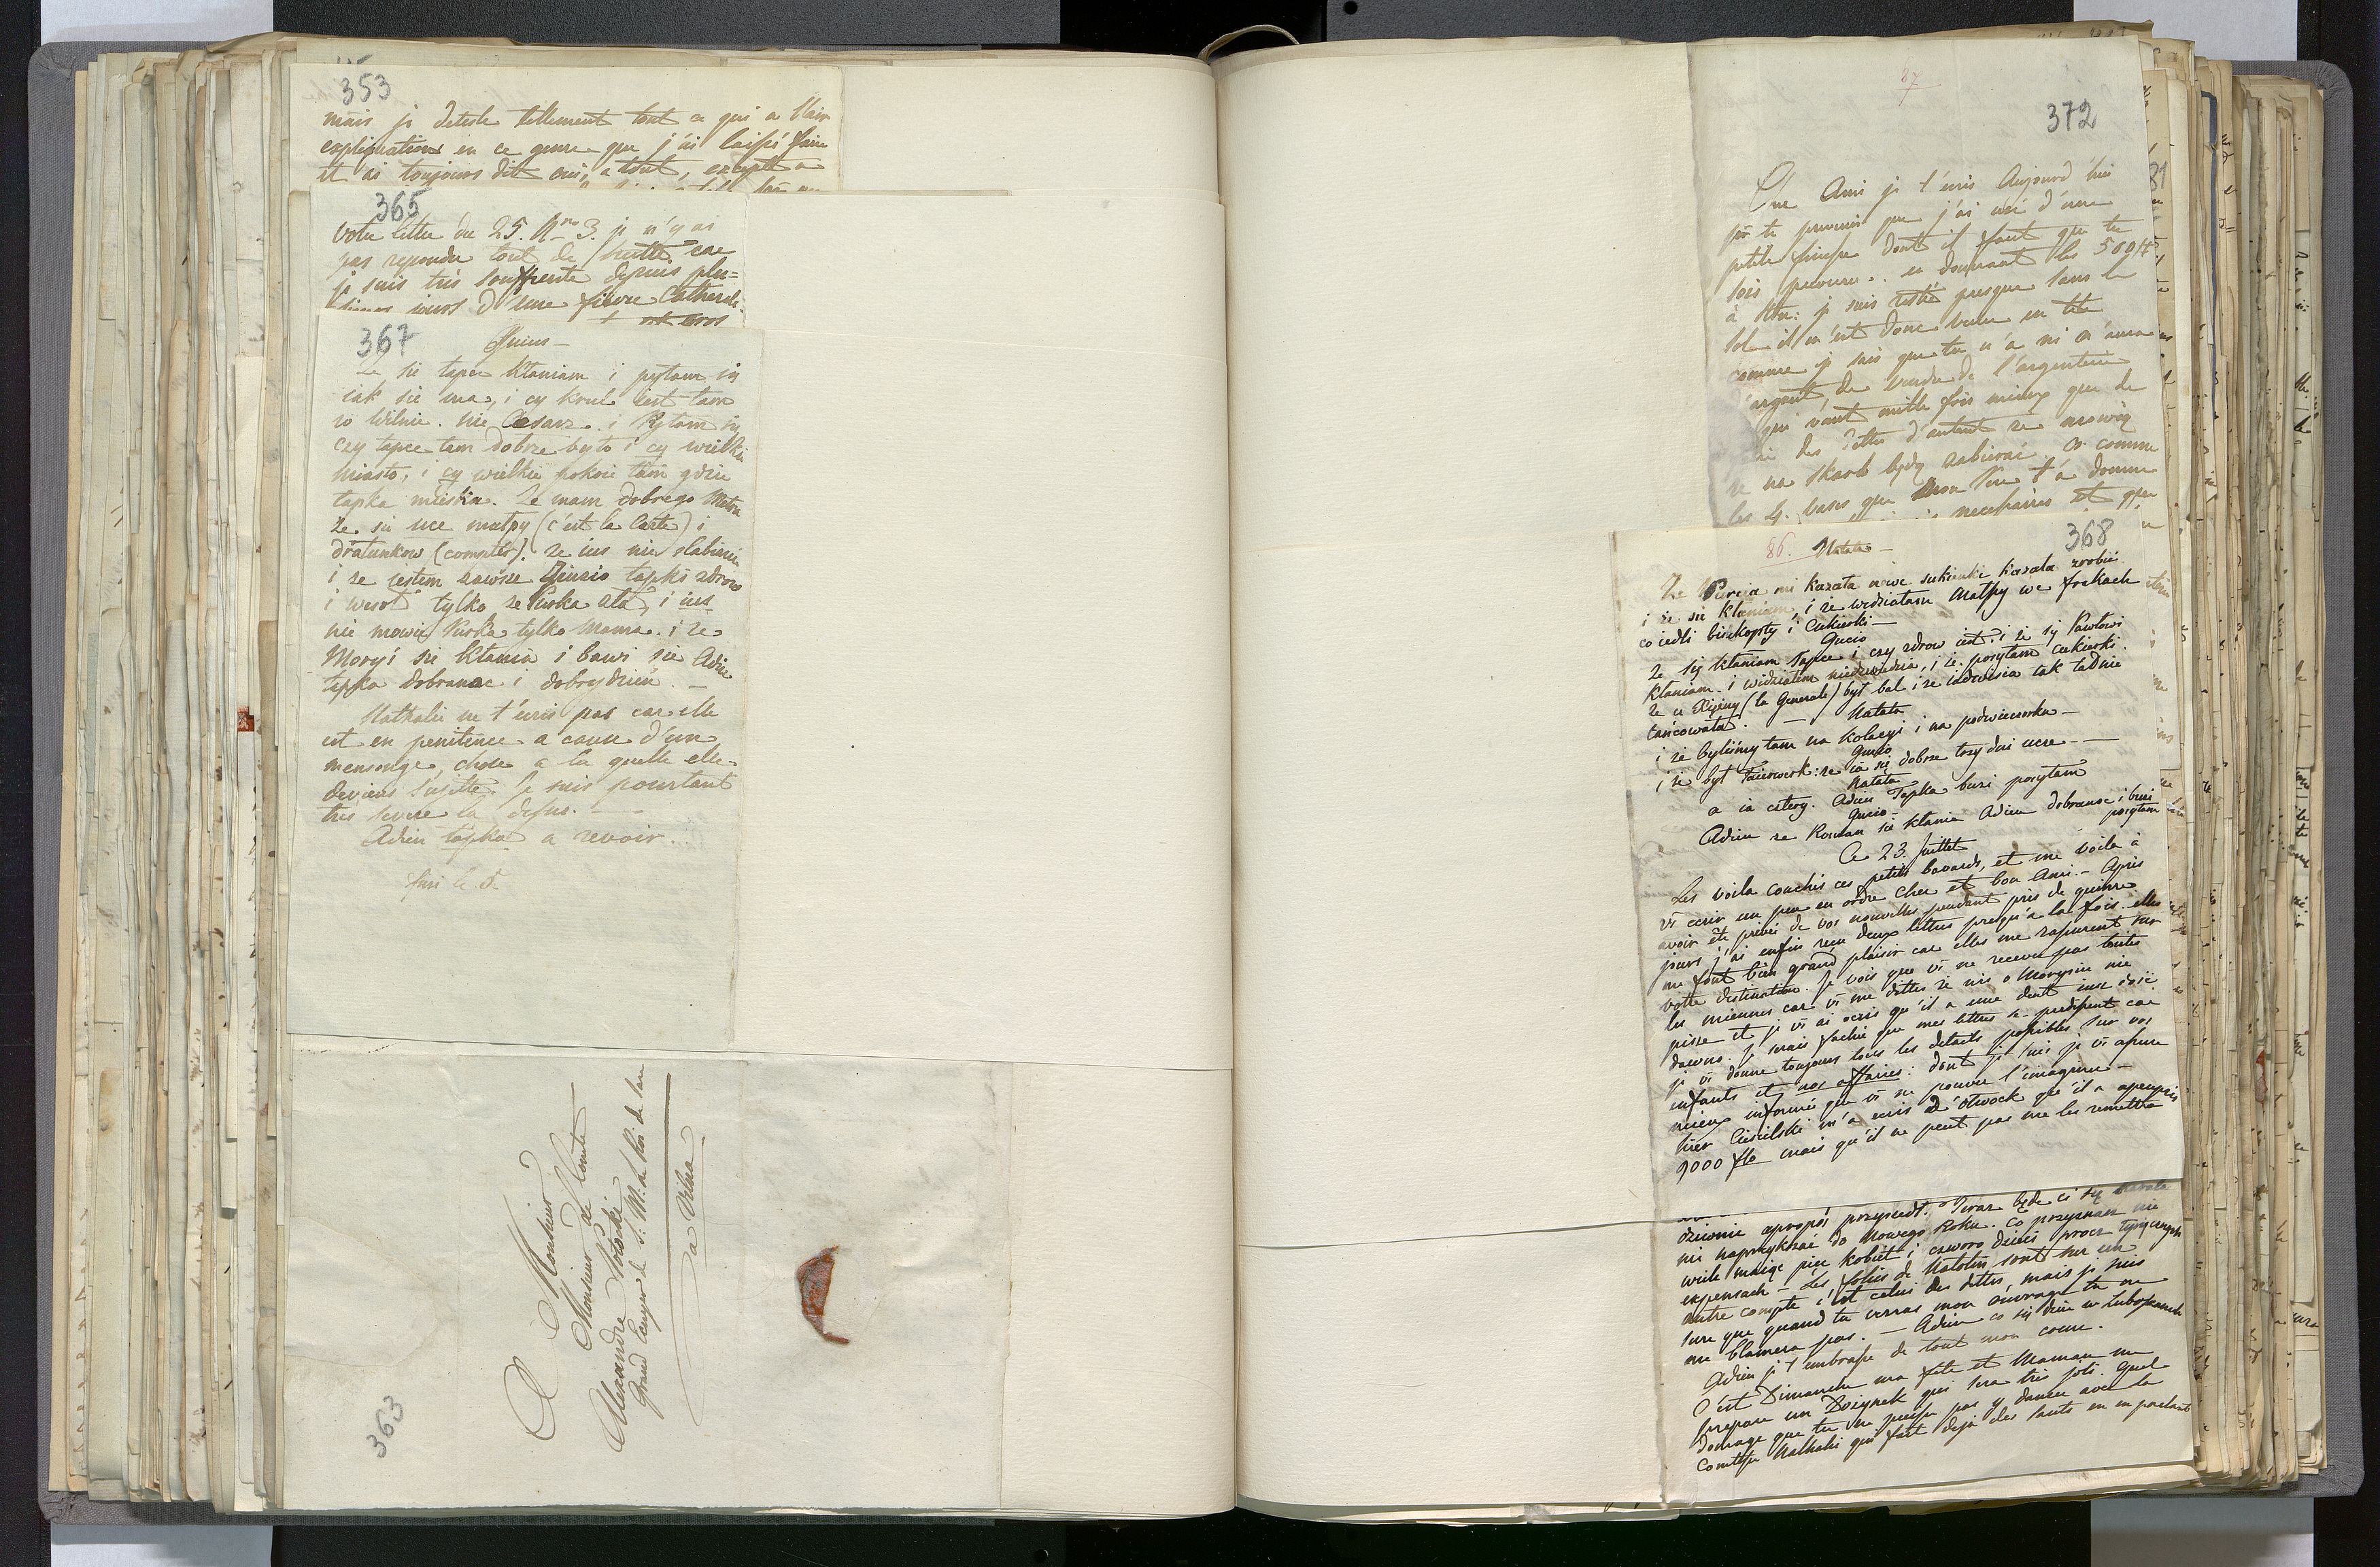 353
mais je deteste tellement tout ce qui a l'air
explication en ce genre que j'ai laissé faire
et ai toujours dit oui, a tout, excepté a
365
Votre lettre du 25. Nro 3. je n'y ai
pas repondu tout de suitte car
je suis très souffrente depuis plu=
sieurs jours d'une fièvre Catherale
367
Gucius —
Ze sie tapce kłaniam i pytam się
iak sie ma, i cy krul iest tam
w Wilnie. nie Cesarz. i Pytam się
czy tapce tam dobrze było i cy wielkie
miasto, i cy wielkie pokoie tam gdzie
tapka mieska. Ze mam dobrego Metra
ze sie uce matpy (c'est la Carte) i
dratunkow (compter). ze ius nie słabiem
i ze iestem zawsze Gucio tapki zdrow
i wesoł tylko ze Puska zła, i ius
nie mowię Puska tylko Mama. i ze
Moryś sie kłania i bawi sie Adieu
tapka dobranoc i dobrydzien. —
Nathalie ne t'ecris pas car elle
est en penitence a cause d'un
mensonge, chose a la quelle elle
deviens sujette. Je suis pourtant
très severe la desus. —
Adieu tapka a revoir.
fini le 5.
363
A Monsieur
Monsieur le Comte
Alexandre Potocki
Grand Ecuyer de S. M. le Roi de Saxe
a Vilna
87
372
Cher Ami je t'ecris Aujourd'hui
pr te prevenir que j'ai usé d'une
petite finesse dont il faut que tu
sois prevenu. en donnant les 560 #
à je suis resté presque sans le
sol il m'est donc venu en tête
comme je sais que tu n'a ni n'aura
d'argent, de vendre de l'argenterie
qui vaut mille fois mieux que de
des dettes d'autent ze mowią
ze na skarb będą zabierać. or comme
les 4. vases que Mon Pere t'a donné
necessaires et que
86. Natata —
368
Ze Purcia mi kazała nowe sukienki kazała zrobić
i ze sie kłaniam, i ze widziałam Małpy we frakach
co iedli biszkopty i Cukierki —
Gucio
Ze się kłaniam Tapce i czy zdrow iest. i ze się Pawłowi
kłaniam i widziałem niedzwiedzia, i ze posyłam cukierki.
Ze u Xiężny (la Generale) był bal i ze iadwisia tak ładnie
tańcowała. —
Natata
i ze byliśmy tam na kolacyi i na podwieczorku —
Gucio
i ze był faierwerk: ze ia się dobrze trzy dni ucze —
Natata
a ia cztery. Adieu Tapka buzi posyłam
Gucio —
Adieu ze Roman sie kłania Adieu dobranoc i buzi
posyłam
Ce 23 Juillet
Les voila couchés ces petits bavards, et me voila à
vs ecrir un peu en ordre cher et bon Ami. — Après
avoir été privée de vos nouvelles pendant près de quinze
jours j'ai enfin reçu deux lettres presqu'a la fois. elles
me font bien grand plaisir car elles me rasurent sur
votre destination. Je vois que vs ne recevez pas toutes
les miennes car vs me dittes ze nic o Morysiu nie
pisze et je vs ai ecris qu'il a une dent iusz dość
dawno. Je serais fachée que mes lettres se perdissent car
je vs donne toujours tous les details possibles sur vos
enfants et nos affaires: dont je suis je vs assure
mieux informée que vs ne pouvez l'imaginer —
hier Ciesielski m'a ecris d'Otwock qu'il a apeuprès
9000 flo mais qu'il ne peut pas me les remettre
dziwnie apropos przyszedł. Teraz będę ci się
nie naprzykrzać do Nowego Roku. Co przyznasz nie
wiele maiąc pięć kobiet i czworo dzieci procz tysiącznych
expensach — Les folies de Natolin sont sur un
autre compte c'est celui des dettes, mais je suis
sure que quand tu verras mon ouvrage tu ne
me blamera pas. — Adieu co się dzie w Lubostroniach
Adieu je t'embrasse de tout mon coeur.
C'est Dimanche ma fête et Maman me
prepare un Dożynek qui sera très joli. Quel
domage que tu ne puisse pas y danser avec la
Comtesse Nathalie qui fait deja des sauts en en parlant